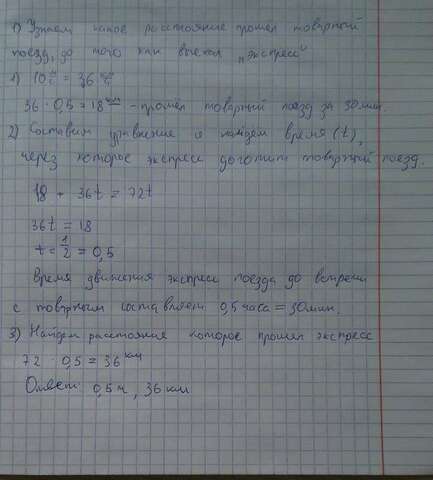 1) Узнаем какое расстояние прошел товарный
поезд, до того как выехал "экспресс"
1) 10 м/с = 36 км/ч
36 · 0,5 = 18 км - прошёл товарный поезд за 30 мин.
2) Составим уравнение и найдем время (t),
через которое экспресс догонит товарный поезд.
18 + 36t = 72t
36t = 18
t = 1/2 = 0,5
Время движения экспресс поезда до встречи
с товарным составляет 0,5 часа = 30 мин.
3) Найдем расстояние которое прошел экспресс
72 · 0,5 = 36 км
Ответ: 0,5 ч, 36 км